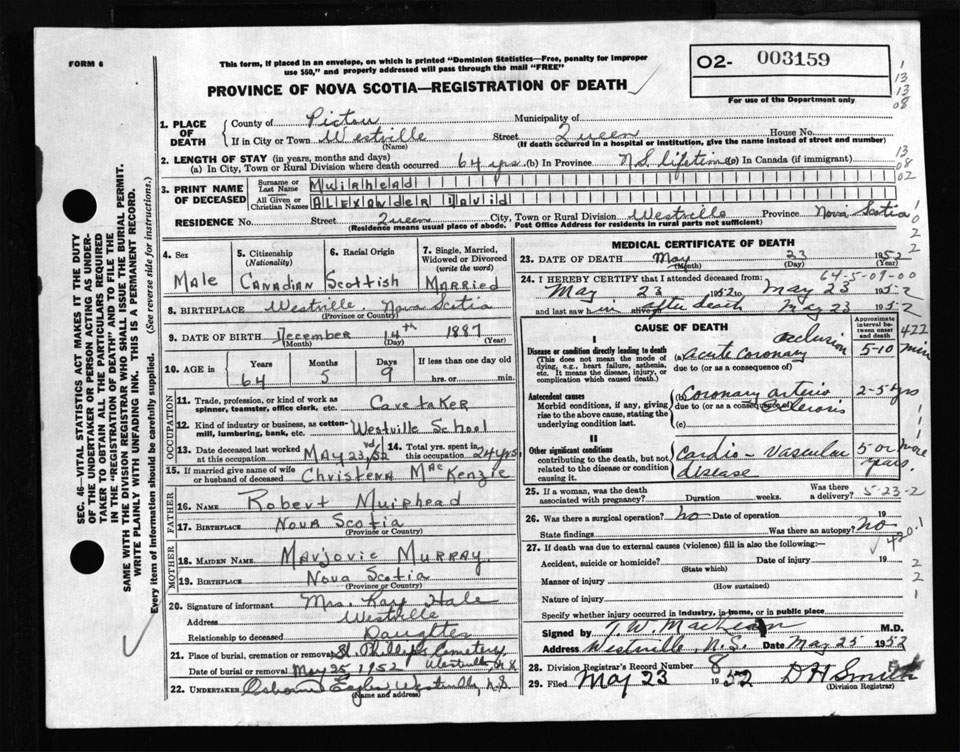 FORM 6
This form, if placed in an envelope, on which is printed "Dominion Statistics—Free, penalty for improper
use $50," and properly addressed will pass through the mail "FREE"
O2- 003159
For use of the Department only
PROVINCE OF NOVA SCOTIA—REGISTRATION OF DEATH
1. PLACE OF DEATH
County of Pictou Municipality of
If in City or Town Westville Street Queen House No.
(Name) (If death occurred in a hospital or institution, give the name instead of street and number)
2. LENGTH OF STAY (in years, months and days)
(a) In City, Town or Rural Division where death occurred 64 yrs (b) In Province N S lifetime (c) In Canada (if immigrant)
3. PRINT NAME OF DECEASED
Surname or Last Name MUIRHEAD
All Given or Christian Names ALEXANDER David
RESIDENCE No. Street Queen City, Town or Rural Division Westville Province Nova Scotia
(Residence means usual place of abode. Post Office Address for residents in rural parts not sufficient)
4. Sex Male
5. Citizenship (Nationality) CANADIAN
6. Racial Origin Scottish
7. Single, Married, Widowed or Divorced (write the word) MARRIED
8. BIRTHPLACE Westville Nova Scotia
(Province or Country)
9. DATE OF BIRTH December 14th 1887
(Month) (Day) (Year)
10. AGE in Years 64 Months 5 Days 9 If less than one day old hrs. or min.
OCCUPATION
11. Trade, profession, or kind of work as spinner, teamster, office clerk, etc. Caretaker
12. Kind of industry or business, as cotton-mill, lumbering, bank, etc. Westville School
13. Date deceased last worked at this occupation MAY 23rd/52
14. Total yrs. spent in this occupation 24 yrs.
15. If married give name of wife or husband of deceased Christena MacKenzie
FATHER
16. NAME Robert Muirhead
17. BIRTHPLACE Nova Scotia
(Province or Country)
MOTHER
18. MAIDEN NAME Marjorie MURRAY
19. BIRTHPLACE Nova Scotia
(Province or Country)
20. Signature of informant Mrs. Kaye Hale
Address Westville
Relationship to deceased Daughter
21. Place of burial, cremation or removal St. Phillips Cemetery
Date of burial or removal May 25, 1952 Westville N.S.
22. UNDERTAKER Westville, N.S.
(Name and address)
MEDICAL CERTIFICATE OF DEATH
23. DATE OF DEATH May 23 1952
(Month) (Day) (Year)
64-5-09-00
24. I HEREBY CERTIFY that I attended deceased from:
May 23 1952 to May 23 1952
and last saw him alive on after death May 23 1952
CAUSE OF DEATH
Approximate interval between onset and death
I
Disease or condition directly leading to death
(This does not mean the mode of dying, e.g., heart failure, asthenia, etc. It means the disease, injury, or complication which caused death.)
(a) Acute Coronary occlusion 5-10 min
due to (or as a consequence of)
Antecedent causes
Morbid conditions, if any, giving rise to the above cause, stating the underlying condition last.
(b) Coronary arterio sclerosis 2-5 yrs
due to (or as a consequence of)
(c)
II
Other significant conditions
contributing to the death, but not related to the disease or condition causing it.
Cardio-Vascular disease 5 or more years.
25. If a woman, was the death associated with pregnancy? Duration weeks. Was there a delivery? 5-23-2
26. Was there a surgical operation? No Date of operation 19
State findings Was there an autopsy? No
27. If death was due to external causes (violence) fill in also the following:—
Accident, suicide or homicide? Date of injury 19
(State which)
Manner of injury
(How sustained)
Nature of injury
Specify whether injury occurred in industry, in home, or in public place
Signed by T. W. MacLean M.D.
Address Westville, N.S. Date May 25 1952
28. Division Registrar's Record Number 8
29. Filed May 23 1952 D H Smith
(Division Registrar)
SEC. 46—VITAL STATISTICS ACT MAKES IT THE DUTY
OF THE UNDERTAKER OR PERSON ACTING AS UNDER-
TAKER TO OBTAIN ALL THE PARTICULARS REQUIRED
IN THE "REGISTRATION OF DEATH" AND TO FILE THE
SAME WITH THE DIVISION REGISTRAR WHO SHALL ISSUE THE BURIAL PERMIT.
WRITE PLAINLY WITH UNFADING INK. THIS IS A PERMANENT RECORD.
Every item of information should be carefully supplied. (See reverse side for instructions.)